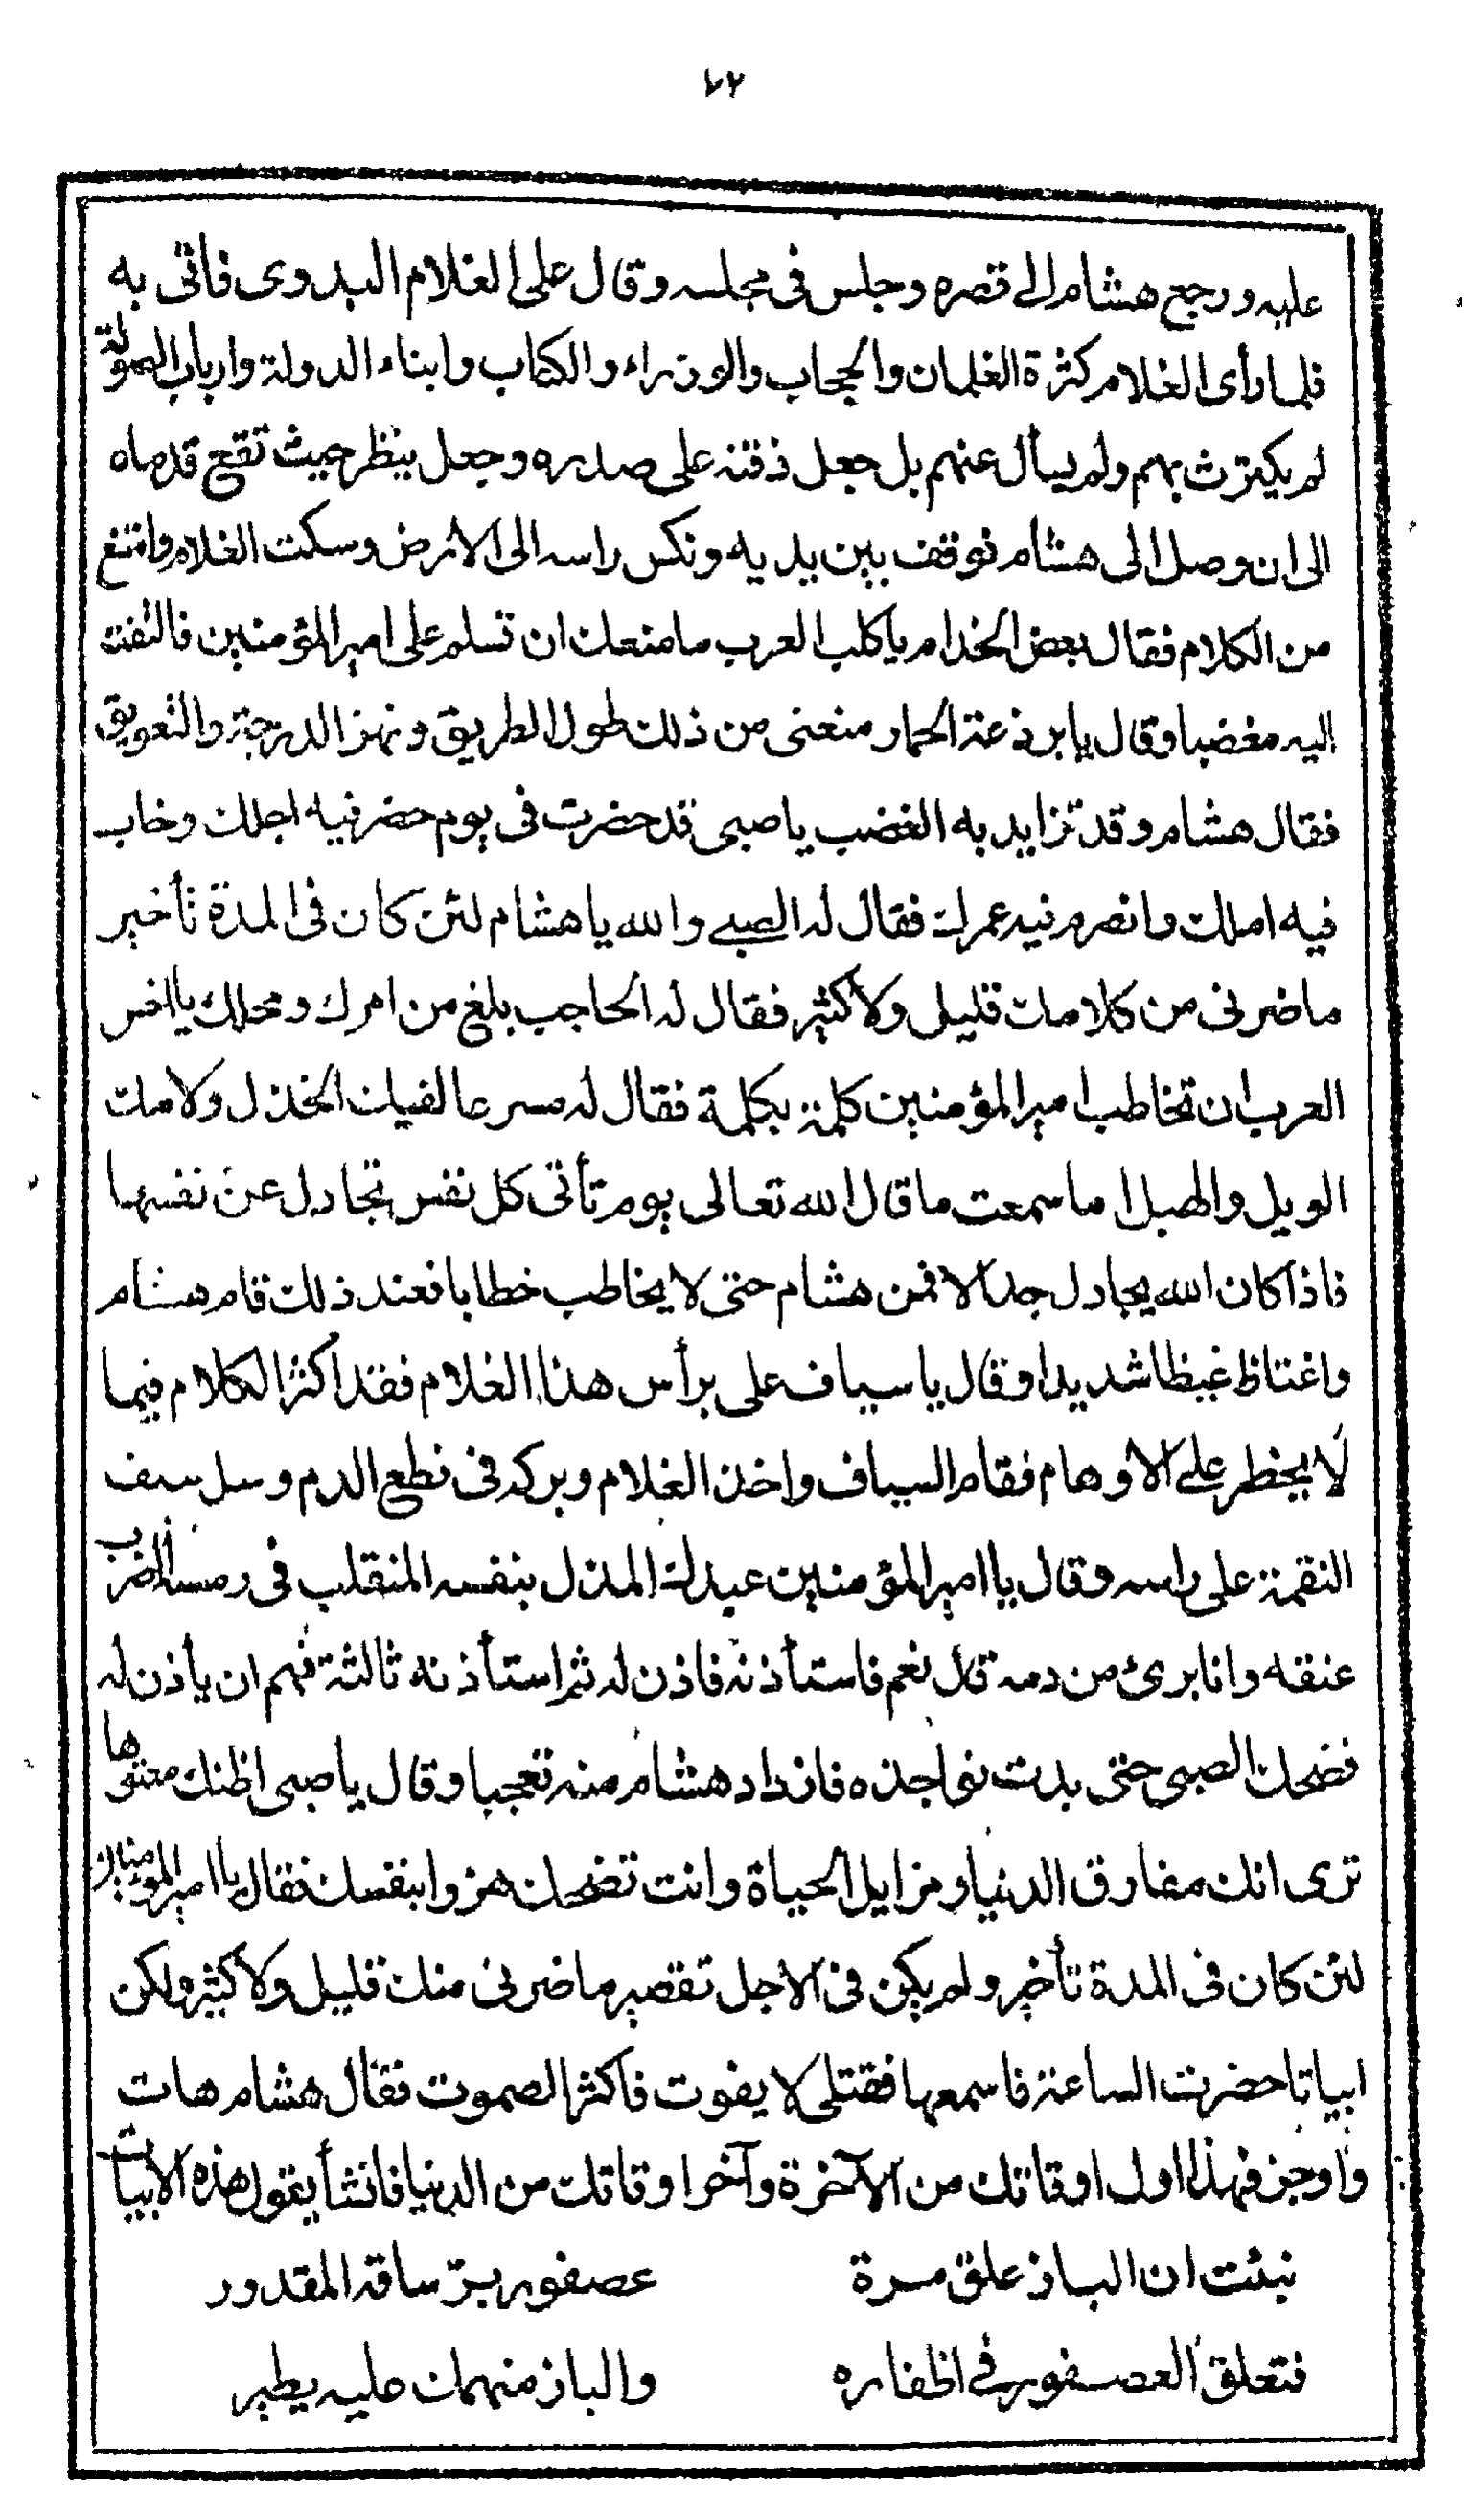 ٧٢
عليه ورجع هشام الى قصره وجلس فى مجلسه وقال على الغلام البدوى فاتى به
فلما رأى الغلام كثرة الغلمان والحجاب والوزراء والكتاب وابناء الدولة وارباب الصولة
لم يكترث بهم ولم يسأل عنهم بل جعل ذقنه على صدره وجعل ينظر حيث تقع قدماه
الى ان وصل الى هشام فوقف بين يديه ونكس راسه الى الارض وسكت الغلام وامتنع
من الكلام فقال بعض الخدام يا كلب العرب ما منعك ان تسلم على امير المؤمنين فالتفت
اليه مغضبا وقال يا برذعة الحمار منعنى من ذلك طول الطريق ونهز الدرجة والتعويق
فقال هشام وقد تزايد به الغضب يا صبى قد حضرت فى يوم حضر فيه اجلك وخاب
فيه املك وانصرم فيه عمرك فقال له الصبى والله يا هشام لئن كان فى المدة تأخير
ما ضرنى من كلامك قليل ولا كثير فقال له الحاجب بلغ من امرك ومحلك يا اخس
العرب ان تخاطب امير المؤمنين كلمة بكلمة فقال له مسرعا لقيك الخذل ولامك
الويل والهبل اما سمعت ما قال الله تعالى يوم تأتى كل نفس تجادل عن نفسها
فاذا كان الله يجادل جدالا فمن هشام حتى لا يخاطب خطابا فعند ذلك قام هشام
واغتاظ غيظا شديدا وقال يا سياف على برأس هذا الغلام فقد اكثر الكلام فيما
لا يخطر على الاوهام فقام السياف واخذ الغلام وبركه فى نطع الدم وسل سيف
النقمة على راسه وقال يا امير المؤمنين عبدك المذل بنفسه المنقلب فى رمسه أاضرب
عنقه وانا برئ من دمه قال نعم فاستأذنه فاذن له ثم استأذنه ثالثة فهم ان يأذن له
فضحك الصبى حتى بدت نواجذه فازداد هشام منه تعجبا وقال يا صبى اظنك معتوها
ترى انك مفارق الدنيا ومزايل الحياة وانت تضحك هزوا بنفسك فقال يا امير المؤمنين
لئن كان فى المدة تأخير ولم يكن فى الاجل تقصير ما ضرنى منك قليل ولا كثير ولكن
ابياتا حضرت الساعة فاسمعها فقتلى لا يفوت فاكثر الصموت فقال هشام هات
واوجز فهذا اول اوقاتك من الآخرة وآخر اوقاتك من الدنيا فانشأ يقول هذه الابيات
نبئت ان الباز علق مرة عصفور بر ساقه المقدور
فتعلق العصفور فى اظفاره والباز منهمك عليه يطير